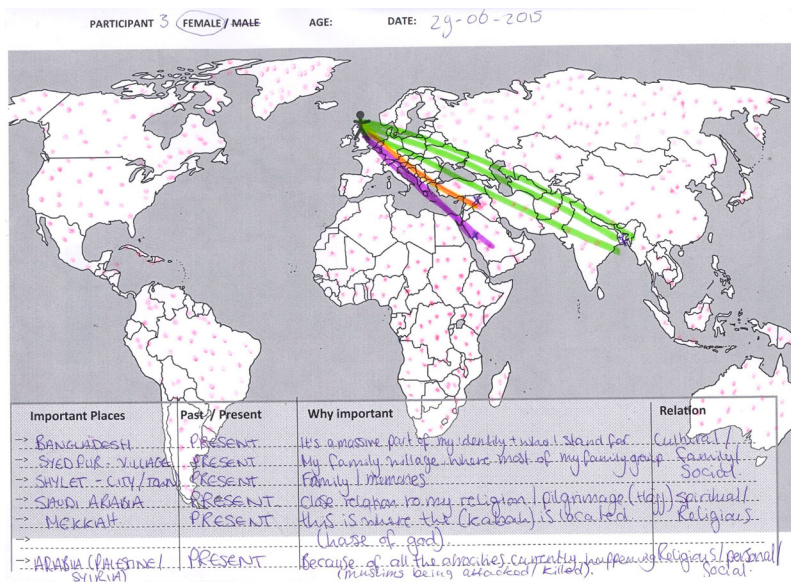 PARTICIPANT 3 FEMALE / MALE AGE: DATE: 29-06-2015
Important Places Past / Present Why important Relation
-> BANGLADESH PRESENT It's a massive part of my identity + who I stand for Cultural /
-> SYEDPUR - VILLAGE PRESENT My family village where most of my family group family /
Social.
-> SHYLET - CITY / TOWN PRESENT Family / memories
-> SAUDI ARABIA PRESENT Close relation to my religion / pilgrimage (Hajj) spiritual /
MEKKAH PRESENT this is where the (kabah) is located Religious
-> (hase of god).
-> ARABIA (PALESTINE / PRESENT Because of all the atrocities currently happening Religious / personal /
SYIRIA) (muslims being attacked / killed). social.